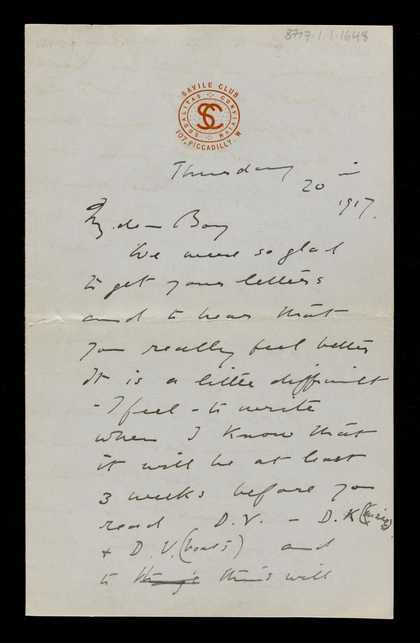 8717.1.1.1648
SAVILE CLUB
SODALITAS CONVIVIUM
SC
107, PICCADILLY. W
Thursday
20
1917.
My dear Boy
We were so glad
to get your letters
and to hear that
you really feel better
It is a little difficult
- I feel - to write
when I know that
it will be at least
3 weeks before you
read D.V. - D.K
& D.U. (boats) and
to this will